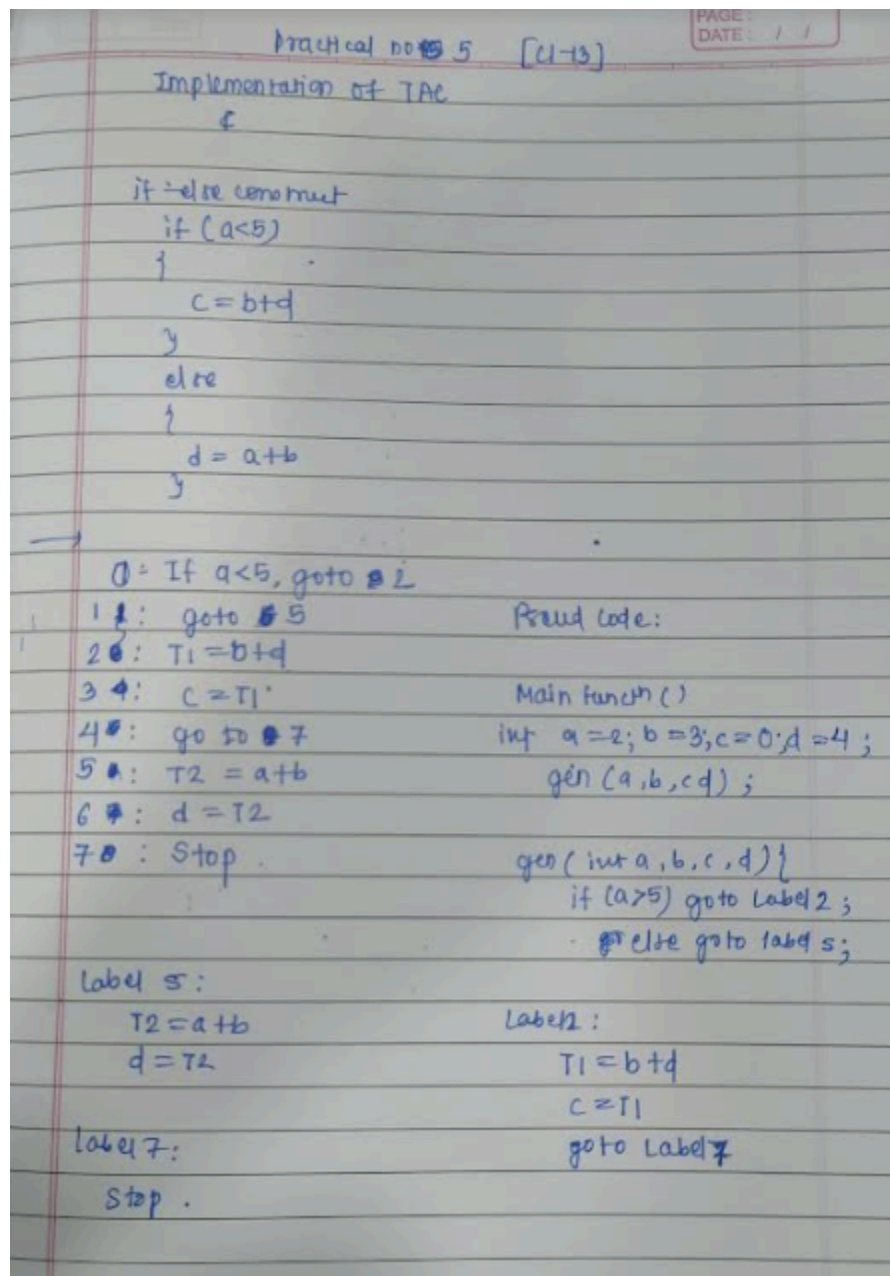 PAGE:
DATE: / /
Practical no 5 [CI-13]
Implementation of TAC
if-else construct
if (a<5)
{
c = b+d
}
else
{
d = a+b
}
0: If a<5, goto 2
1: goto 5
2: T1 = b+d
3: C = T1
4: go to 7
5: T2 = a+b
6: d = T2
7: Stop.
Pseud Code:
Main functn ()
int a = 2; b = 3; c = 0; d = 4;
gen (a, b, cd);
gen (int a, b, c, d) {
if (a>5) goto Label 2;
else goto label 5;
Label2:
T1 = b+d
C = T1
goto Label 7
Label 5:
T2 = a+b
d = T2
Label 7:
Stop.